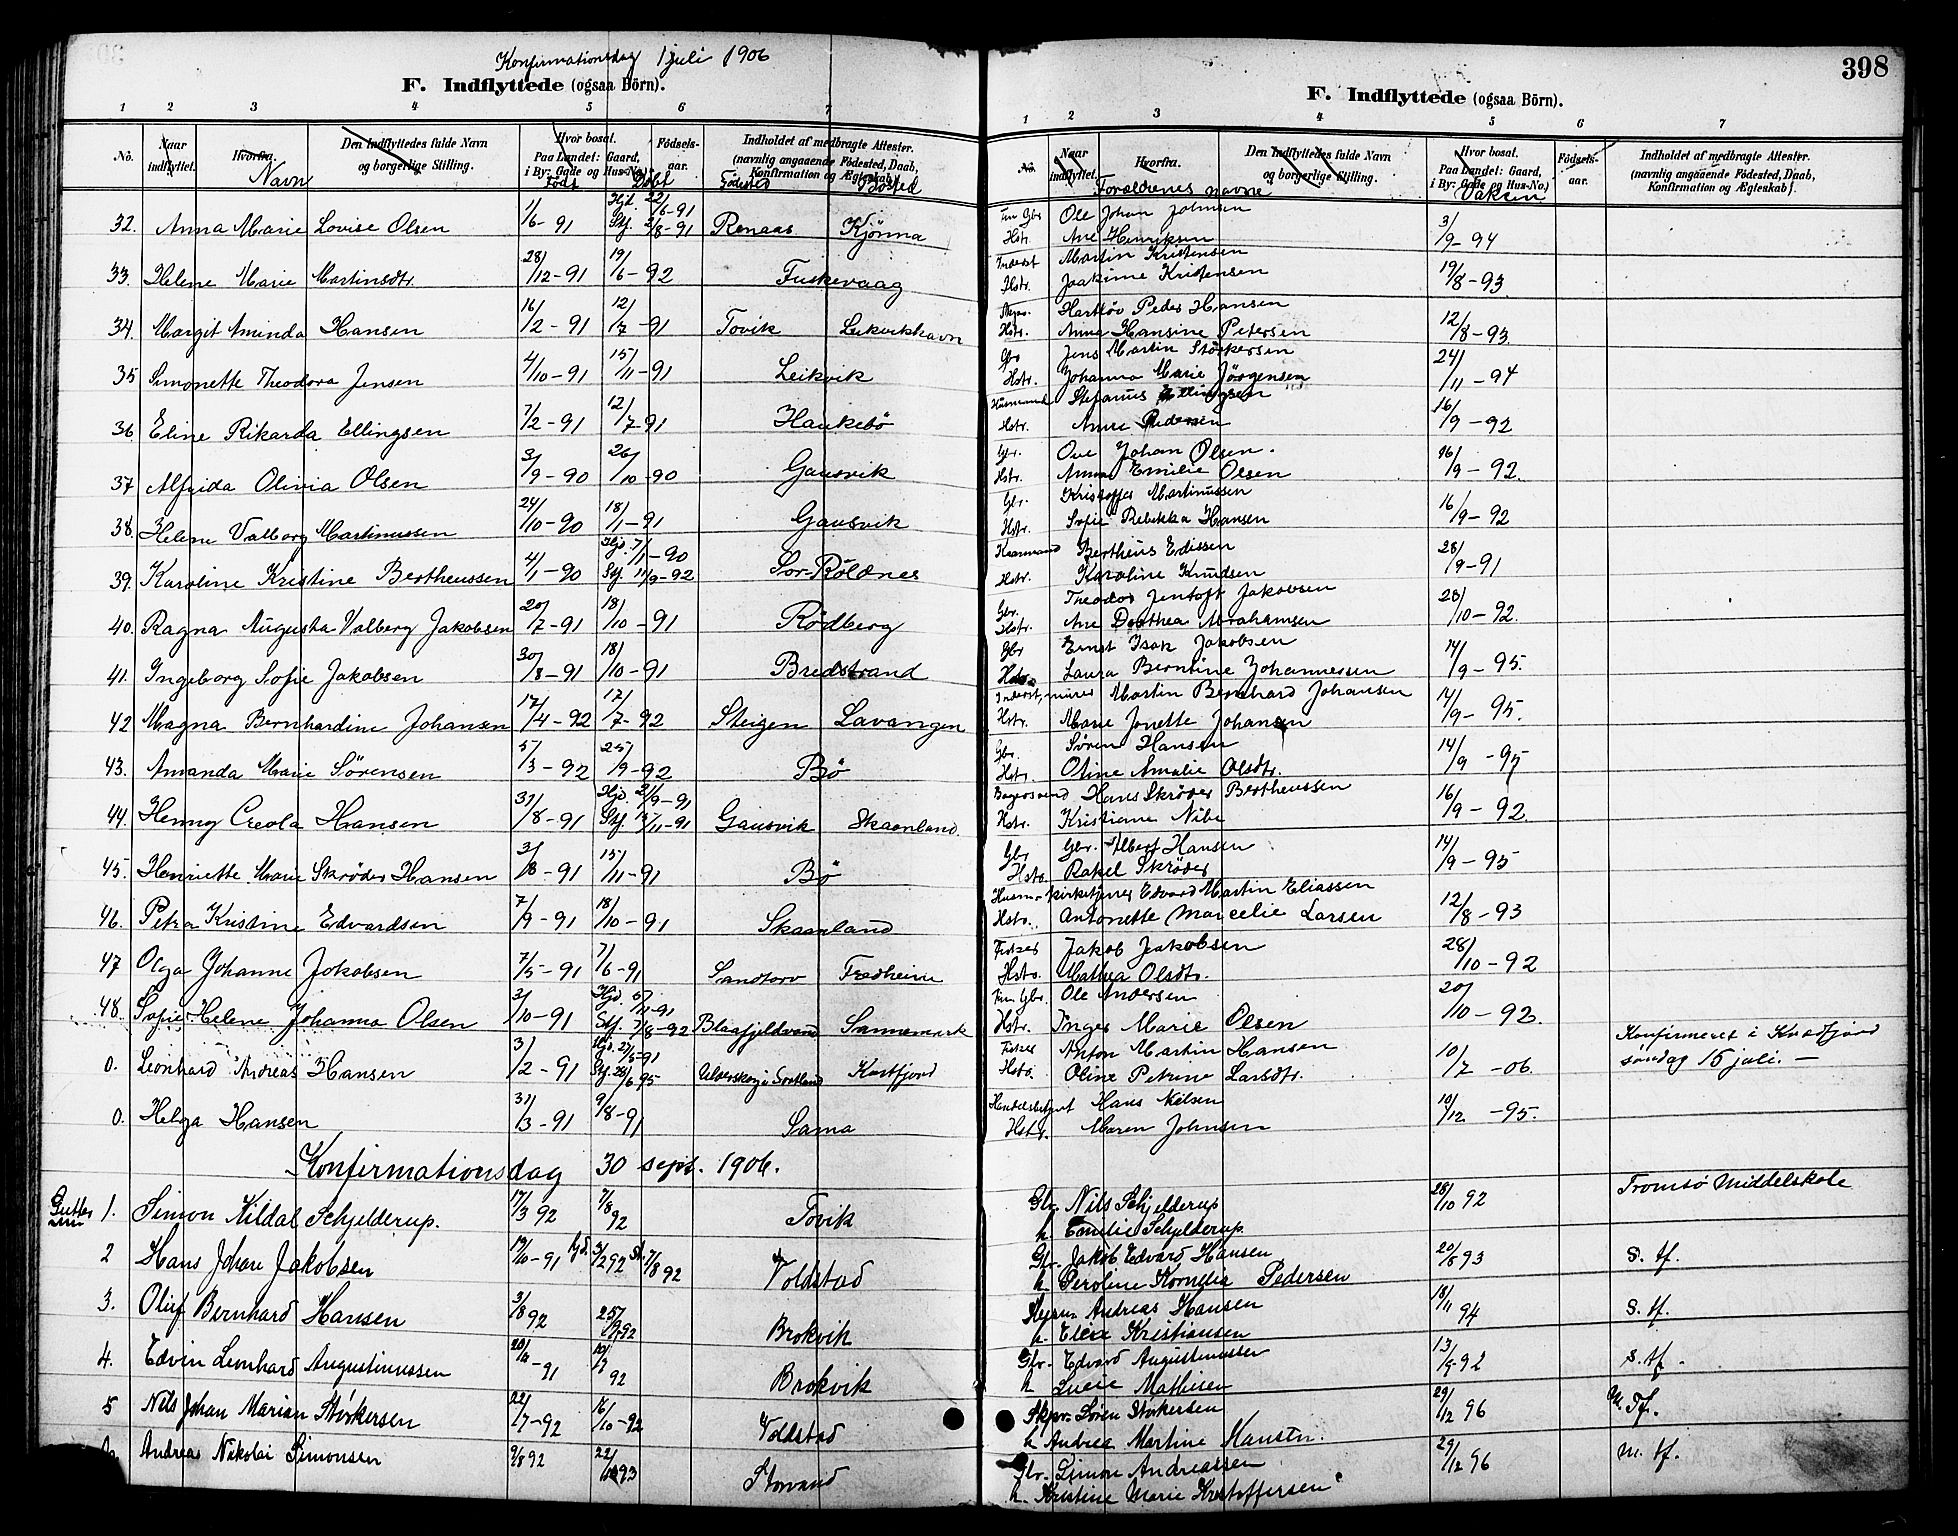 Konfirmationsdag 1 juli 1906
F. Indflyttede (ogsaa Börn).
1 2 3 4 5 6 7
No. Naar indflyttet. Hvorfra. Den Indflyttedes fulde Navn og borgerlige Stilling. Hvor bosat. Paa Landet: Gaard, i By: Gade og Hus-No.) Födsels-aar. Indholdet af medbragte Attester. (navnlig angaaende Födested, Daab, Konfirmation og Ægteskab).
Navn Födt Döbt Födested Bosted
32. Anna Marie Lovise Olsen 1/6-91 Hjd. 22/6-91 Stf. 2/8-91 Renaas Kjönna
33. Helene Marie Martinsdtr. 28/12-91 19/6-92 Fuskevaag
34. Margit Aminda Hansen 16/2-91 12/7-91 Tovik Leikvikshavn
35 Simonette Theodora Jensen 4/10-91 15/11-91 Leikvik
36 Eline Rikarda Ellingsen 7/2-91 12/7-91 Haukebö
37 Alfrida Olivia Olsen 3/9-90 26/10-90 Gausvik
38. Helene Valborg Martinussen 24/10-90 18/1-91 Gausvik
39. Karoline Kristine Bertheussen 4/1-90 Hjd. 7/1-90 Stf. 11/9-92 Sör-Röldnes
40. Ragna Augusta Valberg Jakobsen 20/7-91 18/10-91 Rödberg
41. Ingeborg Sofie Jakobsen 30/8-91 18/10-91 Bredstrand
42 Magna Bernhardine Johansen 17/4-92 17/7-92 Steigen Lavangen
43. Amanda Marie Sörensen 5/3-92 25/9-92 Bö
44. Henny Creola Hansen 31/8-91 Hjd. 21/9-91 Stf. 15/11-91 Gausvik Skaanland.
45. Henriette Marie Skröder Hansen 3/8-91 15/11-91 Bö
46. Petra Kristine Edvardsen 7/9-91 18/10-91 Skaanland
47 Olga Johanne Jakobsen 7/5-91 7/6-91 Sandtorv Fredheim
48. Sofie Helene Johanna Olsen 3/10-91 Hjd. 6/11-91 Stf. 7/8-92 Blaafjeldvand Sannemark
0. Leonhard Andreas Hansen 3/2-91 Hjd. 27/5-91 Stf. 28/6 95 Sortland Kastfjord
0. Helga Hansen 31/3-91 9/8-91 Sama
Konfirmationsdag 30 sept. 1906.
Gutter 1. Simon Kildal Schjelderup. 17/3 92 7/8 92 Tovik
2 Hans Johan Jakobsen 19/10-91 hjd. 3/2 92 st. 7/8 92 Voldstad
3. Oluf Bernhard Hansen 3/8 92 25/9 92 Brokvik
4. Edvin Leonhard Augustinussen -91 92 Brokvik
5 Nils Johan Marian Störkersen 22/7-92 16/10-92 Voldstad
Andreas Nikolai Simonsen 9/8 92 22/ 93 Storvand
398
F. Indflyttede (ogsaa Börn).
1 2 3 4 5 6 7
No. Naar indflyttet. Hvorfra. Den Indflyttedes fulde Navn og borgerlige Stilling. Hvor bosat. Paa Landet: Gaard, i By: Gade og Hus-No.) Födsels-aar. Indholdet af medbragte Attester. (navnlig angaaende Födested, Daab, Konfirmation og Ægteskab).
Forældrenes navne Vaksen
Gbr. Ole Johan Johnsen 3/9-94
Hstr. Ane Henriksen
Inderst Martin Kristensen 19/8-93
Hstr. Joakime Kristensen
Hartløv Peder Hansen 12/8-93
Hstr. Anna Hansine Petersen
Gbr Jens Martin Störkersen 24/11-94
Hstr. Johanna Marie Jörgensen
Husmand Stefanus Ellingsen 16/9-92
Hstr. Anne Pedersen
Gbr. Ove Johan Olsen. 16/9-92.
Hstr. Anna Emilie Olsen
Gbr. Kristoffer Martinussen 16/9-92
Hstr. Sofie Rebekka Hansen
Kaarmand Bertheus Edissen 28/9-91
Hstr. Karoline Knudsen
Gbr. Theodor Jentoft Jakobsen 23/10-92.
Hstr. Ane Dorthea Abrahamsen
Gbr Ernst Isak Jakobsen 14/9-95.
Hstr. Laura Berntine Johannessen
Inderst, minør Martin Bernhard Johansen 14/9-95.
Hstr. Marie Jonette Johansen
Gbr. Søren Hansen 14/9-95
Hstr. Oline Amalie Olsdtr.
Bagersvend Hans Skröder Bertheussen 16/9-92.
Hstr. Kristiane Nibe
Gbr Gbr. Albert Hansen 14/9-95
Hstr. Rakel Skröder
Husm. kirketjener Edvard Martin Eliassen 12/8-93
Hstr. Antonette Marcelie Larsen
Fisker Jakob Jakobsen 28/10-92
Hstr. Mathea Olsdtr.
Gbr. Ole Andersen 20/10-92.
Hstr. Inger Marie Olsen
Fisker Anton Martin Hansen 10/7-06. Konfirmeret i Kvædfjord söndag 15 juli. —
Hstr. Oline Petrine Larsdtr.
Handelsbetjent Hans Nilsen 10/12-95.
Hstr. Maren Johnsen
Gbr. Nils Schjelderup 28/10 92 Tromsö Middelskole
h. Emilie Schjelderup.
Gbr. Jakob Edvard Hansen 20/8 93 S. tf.
h. Peroline Kornelia Pedersen
Andreas Hansen 18/11 94 S. tf.
h. Elea Kristiansen
Gbr. Edvard Augustinussen 13/9 92 S. tf.
h Lucie Mathisen
Skpr. Sören Störkersen 29/12 96 M. Tf.
h Andrea Martine Hanstn.
Gbr. Simon Andreassen 29/12 96 M. tf.
h. Kristine Marie Kristoffersen